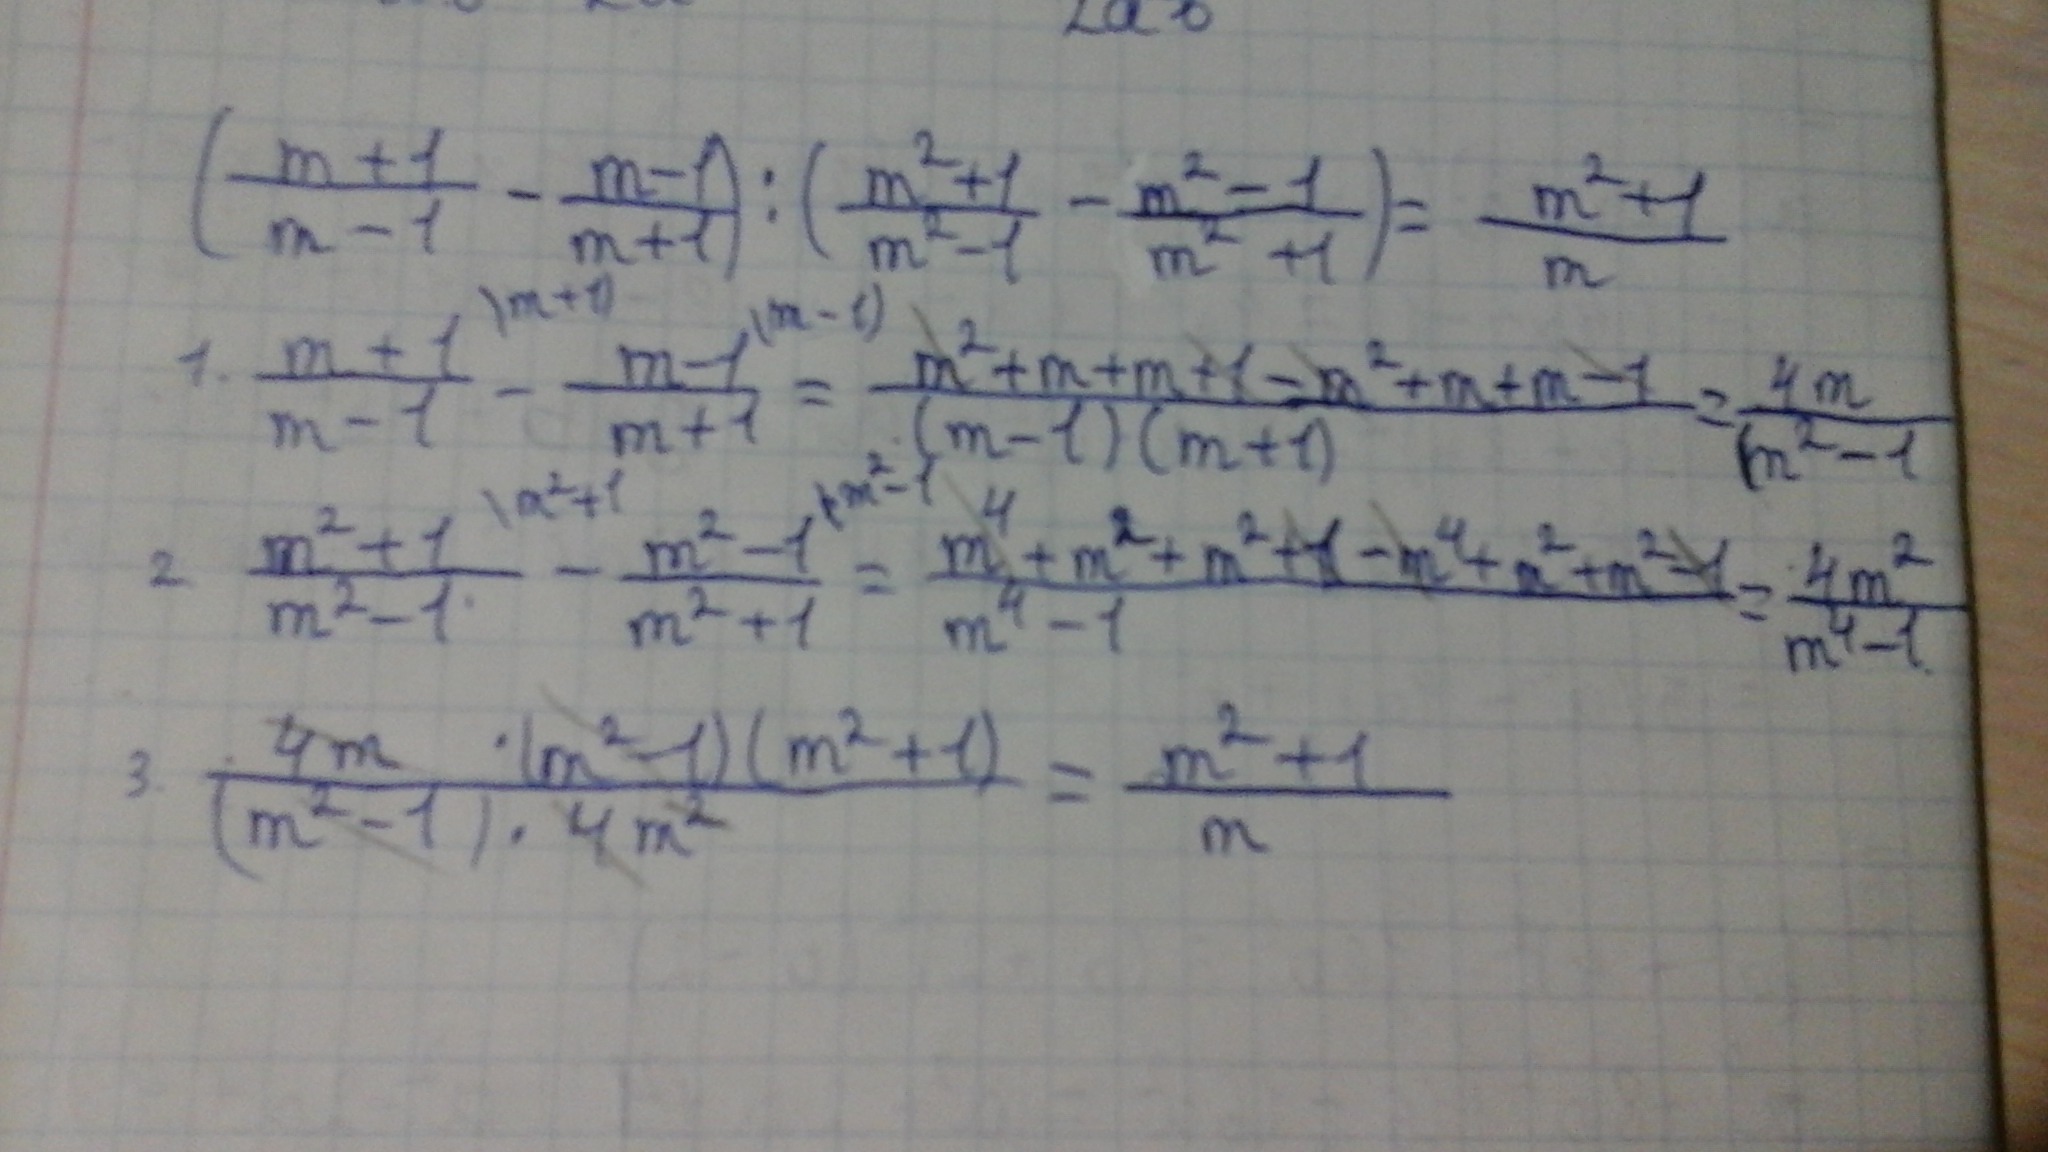 2ab
(m+1/m-1 - m-1/m+1) : (m²+1/m²-1 - m²-1/m²+1) = m²+1/m
1. m+1/m-1 \m+1) - m-1/m+1 \m-1) = m²+m+m+1-m²+m+m-1/(m-1)(m+1) = 4m/m²-1
2 m²+1/m²-1 \m²+1 - m²-1/m²+1 \m²-1 = m⁴+m²+m²+1-m⁴+m²+m²-1/m⁴-1 = 4m²/m⁴-1
3. 4m·(m²-1)(m²+1)/(m²-1)·4m² = m²+1/m